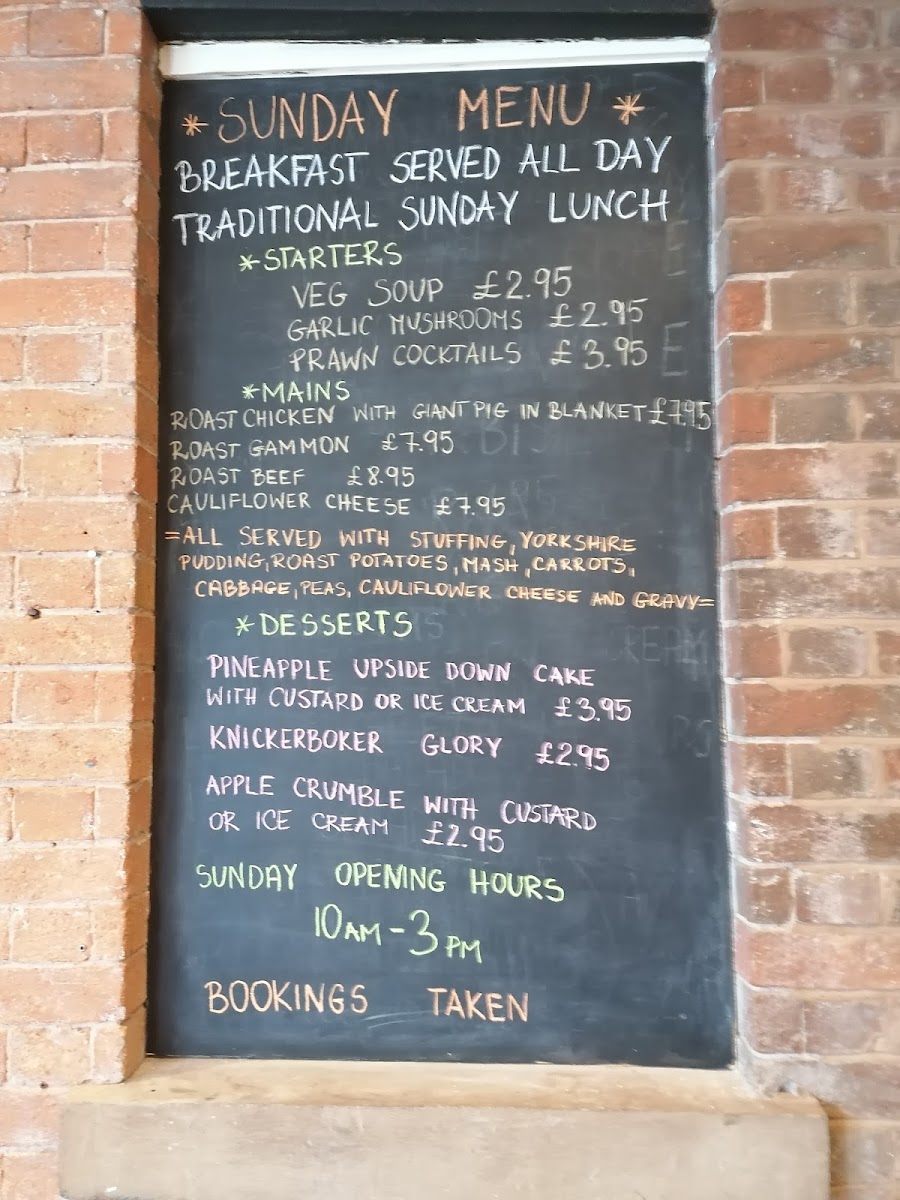 * SUNDAY MENU *
BREAKFAST SERVED ALL DAY
TRADITIONAL SUNDAY LUNCH
*STARTERS
VEG SOUP £2.95
GARLIC MUSHROOMS £2.95
PRAWN COCKTAILS £3.95
*MAINS
ROAST CHICKEN WITH GIANT PIG IN BLANKET £7.95
ROAST GAMMON £7.95
ROAST BEEF £8.95
CAULIFLOWER CHEESE £7.95
=ALL SERVED WITH STUFFING, YORKSHIRE
PUDDING, ROAST POTATOES, MASH, CARROTS,
CABBAGE, PEAS, CAULIFLOWER CHEESE AND GRAVY=
*DESSERTS
PINEAPPLE UPSIDE DOWN CAKE
WITH CUSTARD OR ICE CREAM £3.95
KNICKERBOKER GLORY £2.95
APPLE CRUMBLE WITH CUSTARD
OR ICE CREAM £2.95
SUNDAY OPENING HOURS
10AM-3PM
BOOKINGS TAKEN